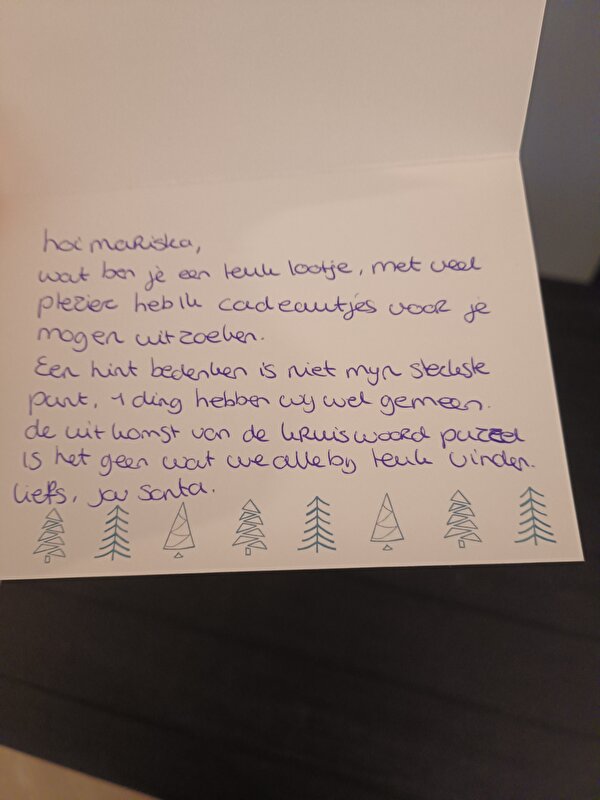 hoi mariska,
wat ben je een leuk lootje, met veel
plezier heb ik cadeautjes voor je
mogen uitzoeken.
Een hint bedenken is niet mijn sterkste
punt, 1 ding hebben wij wel gemeen.
de uitkomst van de kruiswoord puzzel
is het geen wat we allebij leuk vinden.
liefs, jou santa.